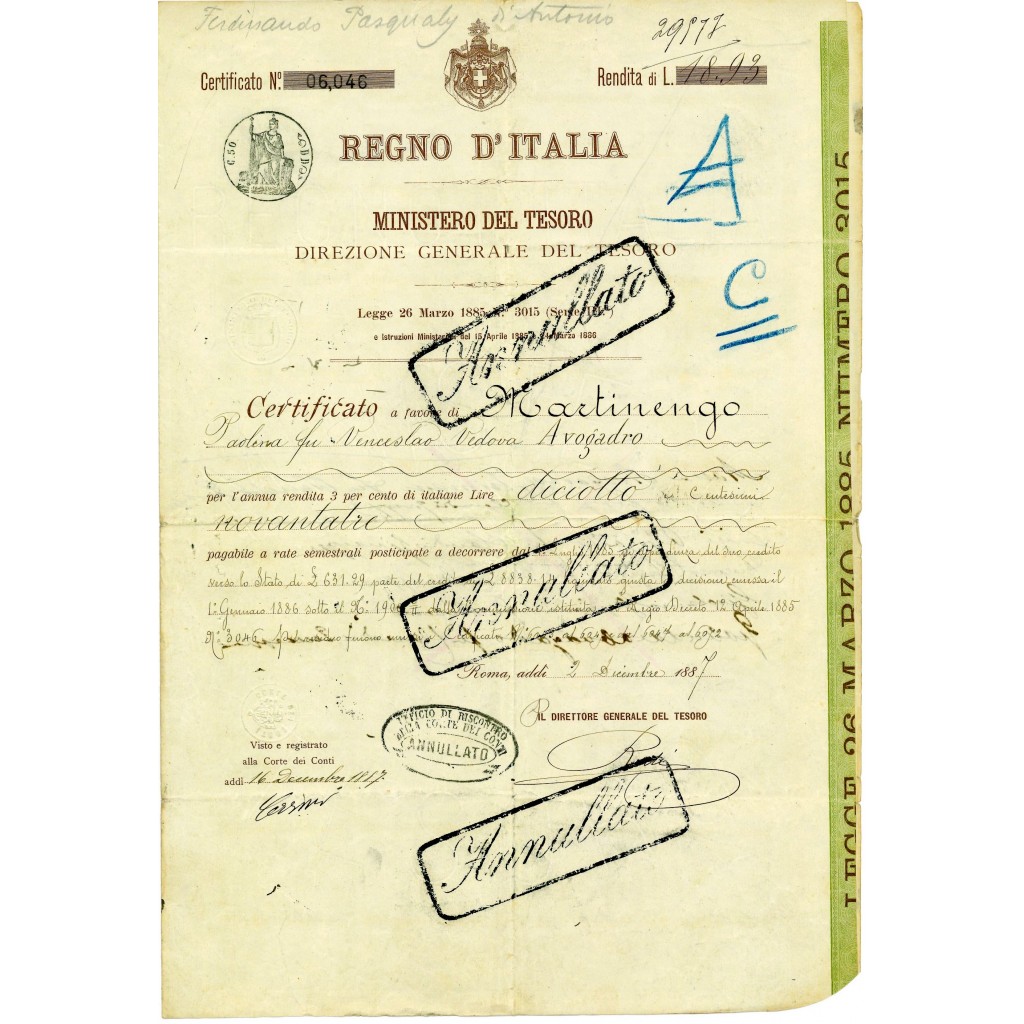 Ferdinando Pasqualy D'Antonio
Certificato N.º 06,046
29872
Rendita di L. 18.93
C. 50
REGNO D'ITALIA
A
MINISTERO DEL TESORO
DIREZIONE GENERALE DEL TESORO
C
Legge 26 Marzo 1885 N.º 3015 (Serie III.ª)
e Istruzioni Ministeriali del 15 Aprile 1885 e Marzo 1886
Annullato
Certificato a favore di Martinengo
Paolina fu Venceslao Vedova Avogadro
per l'annua rendita 3 per cento di italiane Lire diciotto e Centesimi
novantatre
pagabile a rate semestrali posticipate a decorrere dal 1º Luglio 1885 in dipendenza del suo credito
verso lo Stato di £ 631.29 parte del credito di £ 8838.14 giusta decisione emessa il
1º Gennaio 1886 sotto il N.º dalla Commissione istituita Regio Decreto 12 Aprile 1885
N.º 3046
Annullato
Roma, addì 2 Dicembre 1887
IL DIRETTORE GENERALE DEL TESORO
UFFICIO DI RISCONTRO
DELLA CORTE DEI CONTI
ANNULLATO
Visto e registrato
alla Corte dei Conti
addì 16 Decembre 1887
Annullato
5
LEGGE 26 MARZO 1885 NUMERO 3015